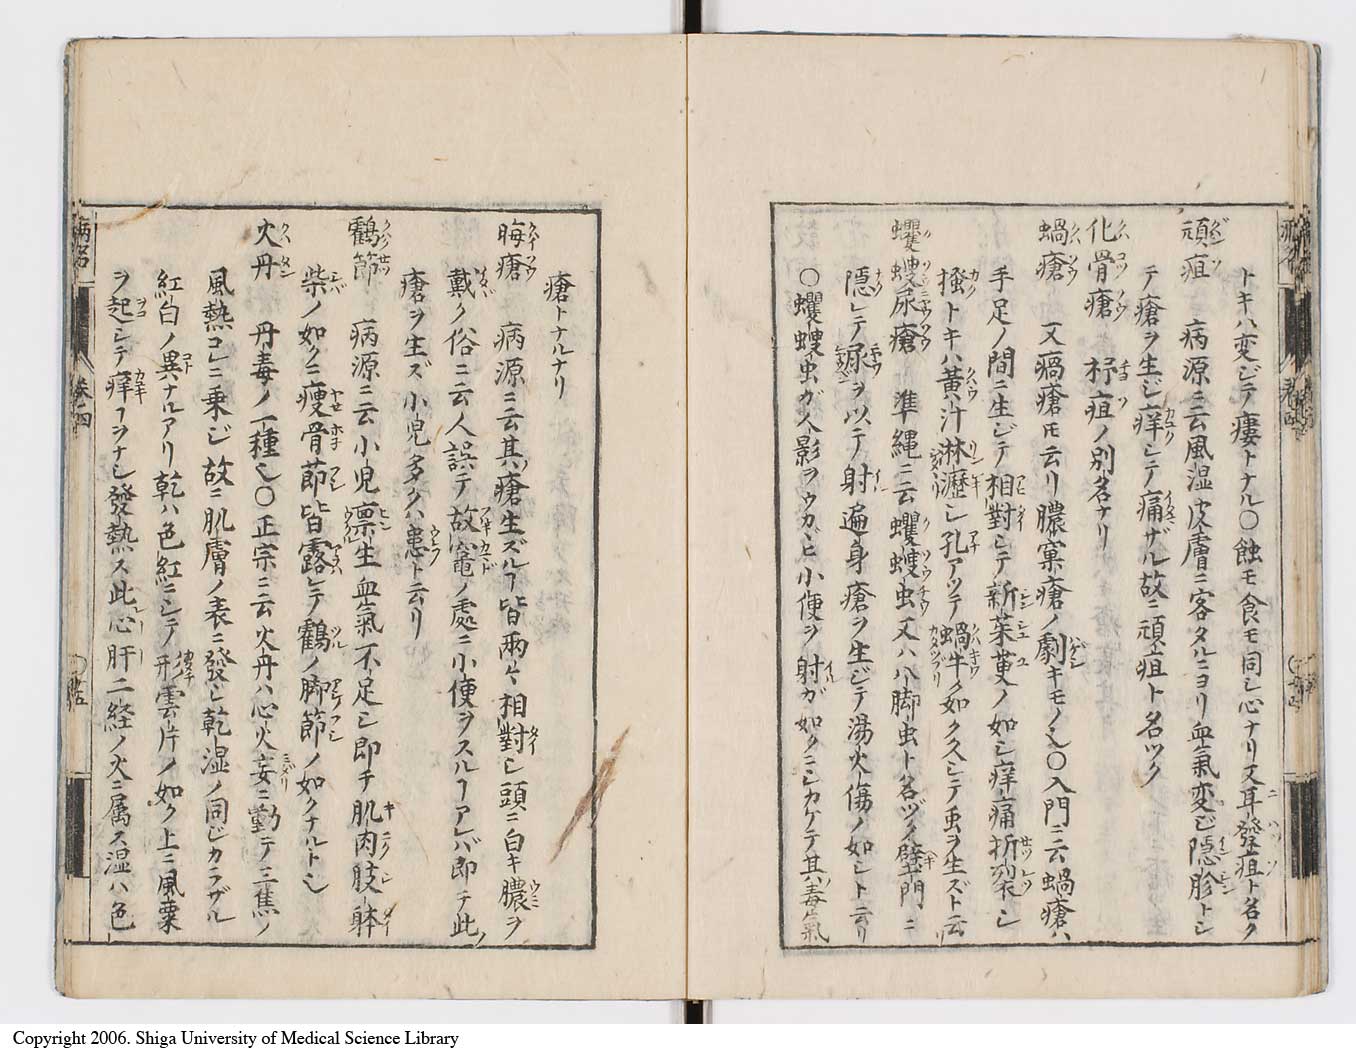 トキハ変ジテ瘻トナル〇蝕モ食モ同シ心ナリ又耳發疽ト名ク
頑疽 病源ニ云風湿皮膚ニ客タルニヨリ血氣変ジ隠胗トシ
テ瘡ヲ生ジ痒シテ痛ザル故ニ頑疽ト名ツク
化骨瘡 杼疽ノ別名ナリ
蝸瘡 又瘑瘡モ云リ膿窠瘡ノ劇キモノ也〇入門ニ云蝸瘡ハ
手足ノ間ニ生ジテ相對シテ新茱萸ノ如シ痒痛折裂シ
搔トキハ黃汁淋瀝シ孔アツテ蝸牛ノ如ク久シテ虫ヲ生ズト云
蠼螋尿瘡 準縄ニ云蠼螋虫又ハ八脚虫ト名ヅク壁門ニ
隠レテ尿ヲ以テ射遍身瘡ヲ生ジテ湯火傷ノ如シト云リ
〇蠼螋虫ガ人影ヲウカヾヒ小便ヲ射ガ如クニシカケテ其毒氣
瘡トナルナリ
晦瘡 病源ニ云其瘡生ズルヿ皆兩々相對シ頭ニ白キ膿ヲ
戴ク俗ニ云人誤テ故竈ノ處ニ小便ヲスルーアレバ即チ此
瘡ヲ生ズ小児多クハ患ト云リ
鸖節 病源ニ云小児禀生血氣不足シ即チ肌肉肢躰
柴ノ如クニ痩骨節皆露レテ鸖ノ脚節ノ如クナルトシ
火丹 丹毒ノ一種也〇正宗ニ云火丹ハ心火妄ニ動テ三焦ノ
風熱コレニ乗ジ故ニ肌膚ノ表ニ發シ乾湿ノ同ジカラザル
紅白ノ異ナルアリ乾ハ色紅ニシテ形雲片ノ如ク上ニ風粟
ヲ起シテ痒ヿヲナシ發熱ス此心肝二経ノ火ニ属ス湿ハ色
病名
巻四
Copyright 2006. Shiga University of Medical Science Library